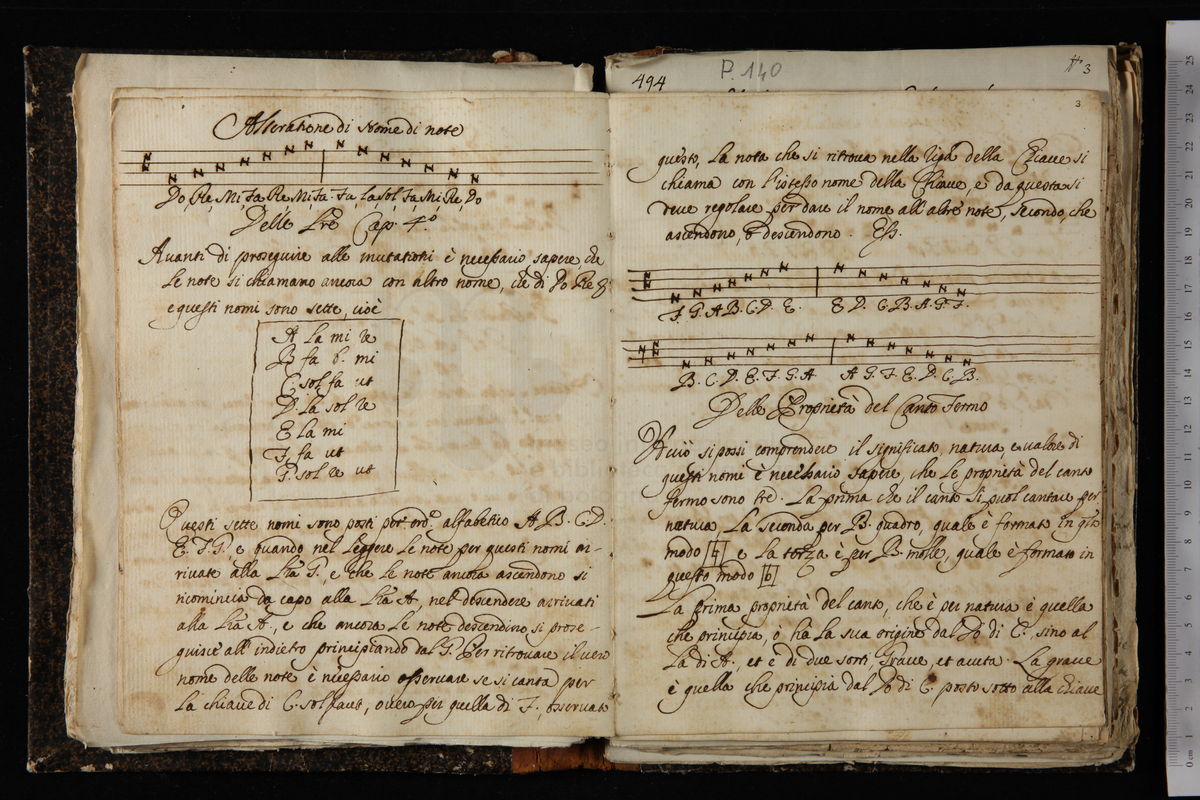 Alteratione di Nome di note
Do, Re, Mi Fa Re Mi Fa. Fa, La Sol, Fa, Mi Re, Do
Delle Lre Cap. 4.º
Avanti di proseguire alle mutationi è necessario sapere che
le note si chiamano ancora con altro nome, che di Do Re &
e questi nomi sono sette, cioè
A la mi re
B fa b. mi
C sol fa ut
D. la sol re
E la mi
F fa ut
G. sol re ut
Questi sette nomi sono posti per ord.e alfabetico A. B. C. D.
E. F. G. e quando nel leggere le note per questi nomi ar-
rivate alla Lra G. e che le note ancora ascendono si
ricomincia da capo alla Lra A, nel descendere arrivati
alla Lra A., e che ancora le note descendino si prose-
guisce all' indietro principiando dal G. Per ritrovare il vero
nome delle note è necessario osservare se si canta per
la chiave di C. sol faut, overo per quella di F., osservato
494
P. 140
3
3
questo, la nota che si ritrova nella riga della Chiave si
chiama con l'istesso nome della Chiave, e da questa si
deve regolare per dare il nome all' altre note, secondo, che
ascendono, o descendono. Es.
F. G. A B. C. D. E. E D. C. B. A. G. F.
B. C. D. E. F. G. A A G. F. E. D. C. B.
Delle Proprietà del Canto Fermo
Acciò si possi comprendere il significato, natura, e valore di
questi nomi è necessario sapere, che le proprietà del canto
fermo sono tre. La prima che il canto si puol cantare per
natura La seconda per B. quadro, quale è formato in gsto
modo ♮ e la terza è per B. molle, quale è formato in
questo modo b
La prima proprietà del canto, che è per natura è quella
che principia, ò ha la sua origine dal Do di C., sino al
La di A., et è di due sorti, Grave, et acuta. La grave
è quella che principia dal Do di C. posto sotto alla chiave